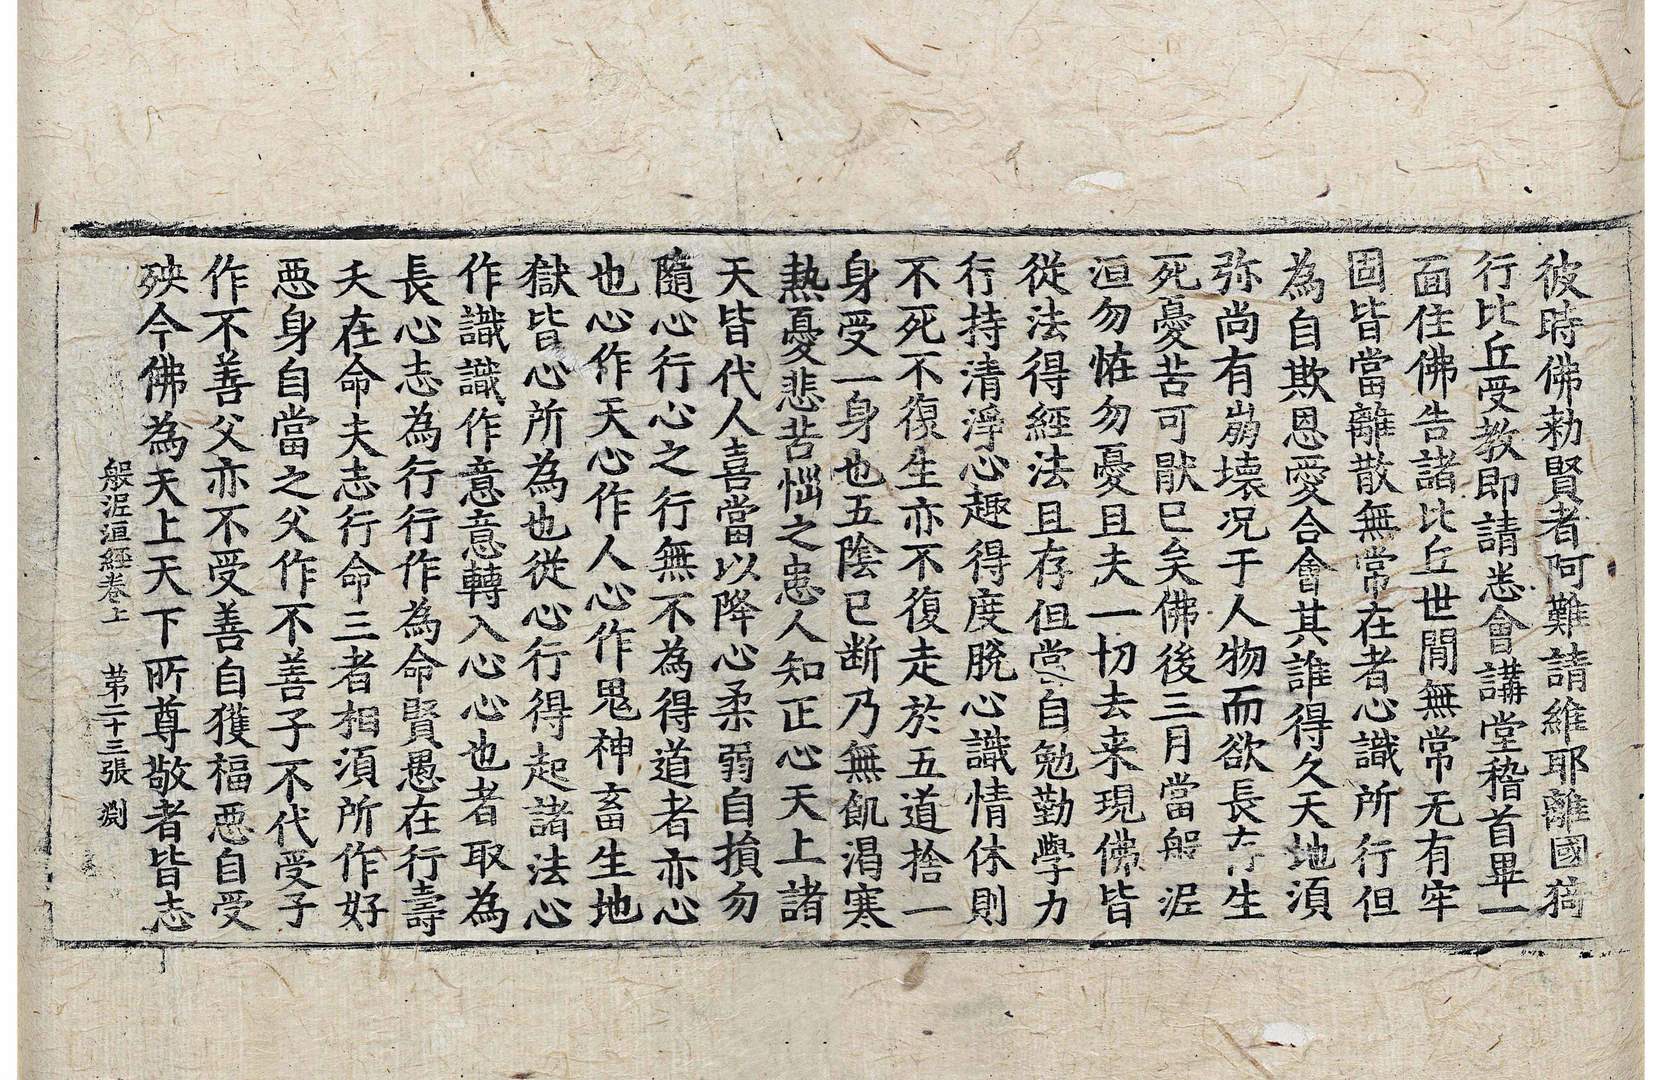 彼時佛勑賢者阿難請維耶離國猗
行比丘受教即請悉會講堂稽首畢一
面住佛告諸比丘世閒無常无有牢
固皆當離散無常在者心識所行但
為自欺恩愛合會其誰得久天地湏
弥尚有崩壊况于人物而欲長存生
死憂苦可猒已矣佛後三月當般泥
洹勿恠勿憂且夫一切去来現佛皆
從法得經法且存但當自勉勤學力
行持清淨心趣得度脫心識情休則
不死不復生亦不復走於五道捨一
身受一身也五陰已断乃無飢渴寒
熱憂悲苦惱之患人知正心天上諸
天皆代人喜當以降心柔弱自損勿
隨心行心之行無不為得道者亦心
也心作天心作人心作鬼神畜生地
獄皆心所為也從心行得起諸法心
作識識作意意轉入心心也者取為
長心志為行行作為命賢愚在行壽
夭在命夫志行命三者相湏所作好
惡身自當之父作不善子不代受子
作不善父亦不受善自獲福惡自受
殃今佛為天上天下所尊敬者皆志
般泥洹經卷上 第二十三張 渕